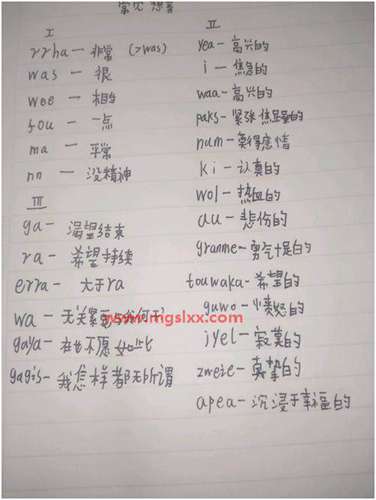 常见想音
I
rrha — 非常 (>was)
was — 很
wee — 相当
fou — 一点
ma — 平常
nn — 没精神
III
ga — 渴望结束
ra — 希望持续
erra — 大于ra
wa — 无关紧要
gaya — 在也不愿
gagis — 我怎样都无所谓
II
yea — 高兴的
i — 焦急的
waa — 高兴的
paks — 紧张焦虑的
num — 莫得感情
ki — 认真的
wol — 热血的
au — 悲伤的
granme — 勇气十足的
touwaka — 希望的
guwo — 愤怒的
jyel — 寂寞的
zweie — 真挚的
apea — 沉浸于幸福的
www.mgslxx.com